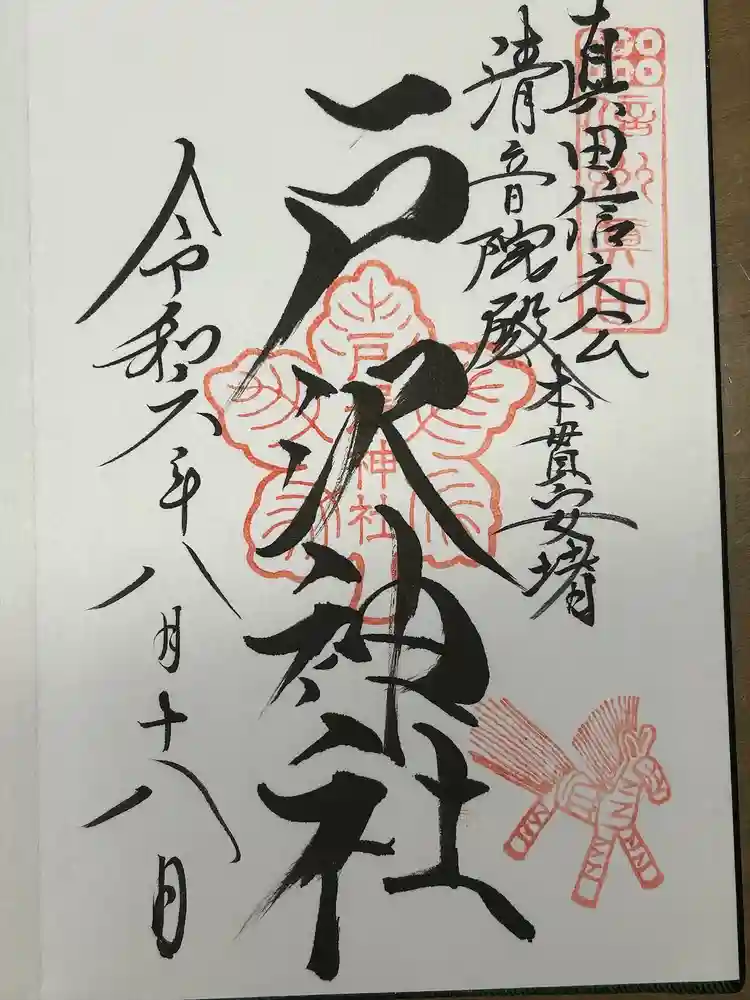 信州真田
真田信之公
清音院殿
本貫安堵
戸沢神社
令和六年八月十八日